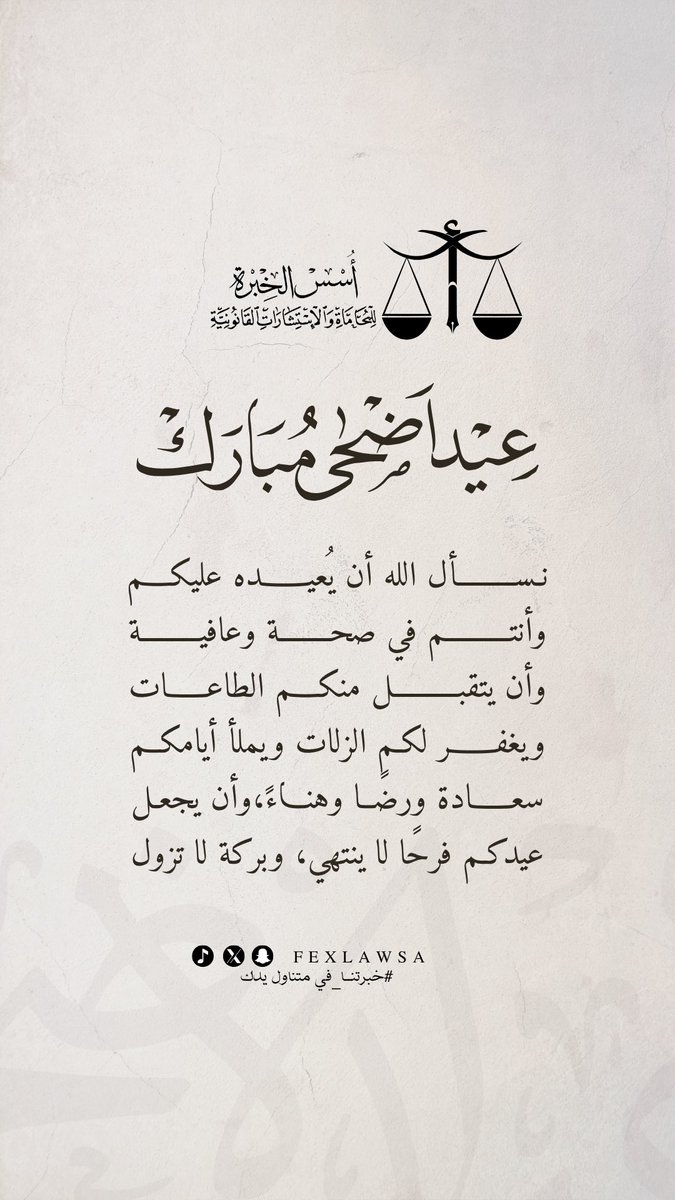 أُسْسُ الخِبْرَة
لِلْمُحَامَاةِ وَالاِسْتِشَارَاتِ القَانُونِيَّةِ
عِيْد اَضْحَى مُبَارَكْ
نسأل الله أن يُعيده عليكم
وأنتم في صحة وعافية
وأن يتقبل منكم الطاعات
ويغفر لكم الزلات ويملأ أيامكم
سعادة ورضًا وهناءً،وأن يجعل
عيدكم فرحًا لا ينتهي، وبركة لا تزول
FEXLAWSA
#خبرتنا_في متناول يدك